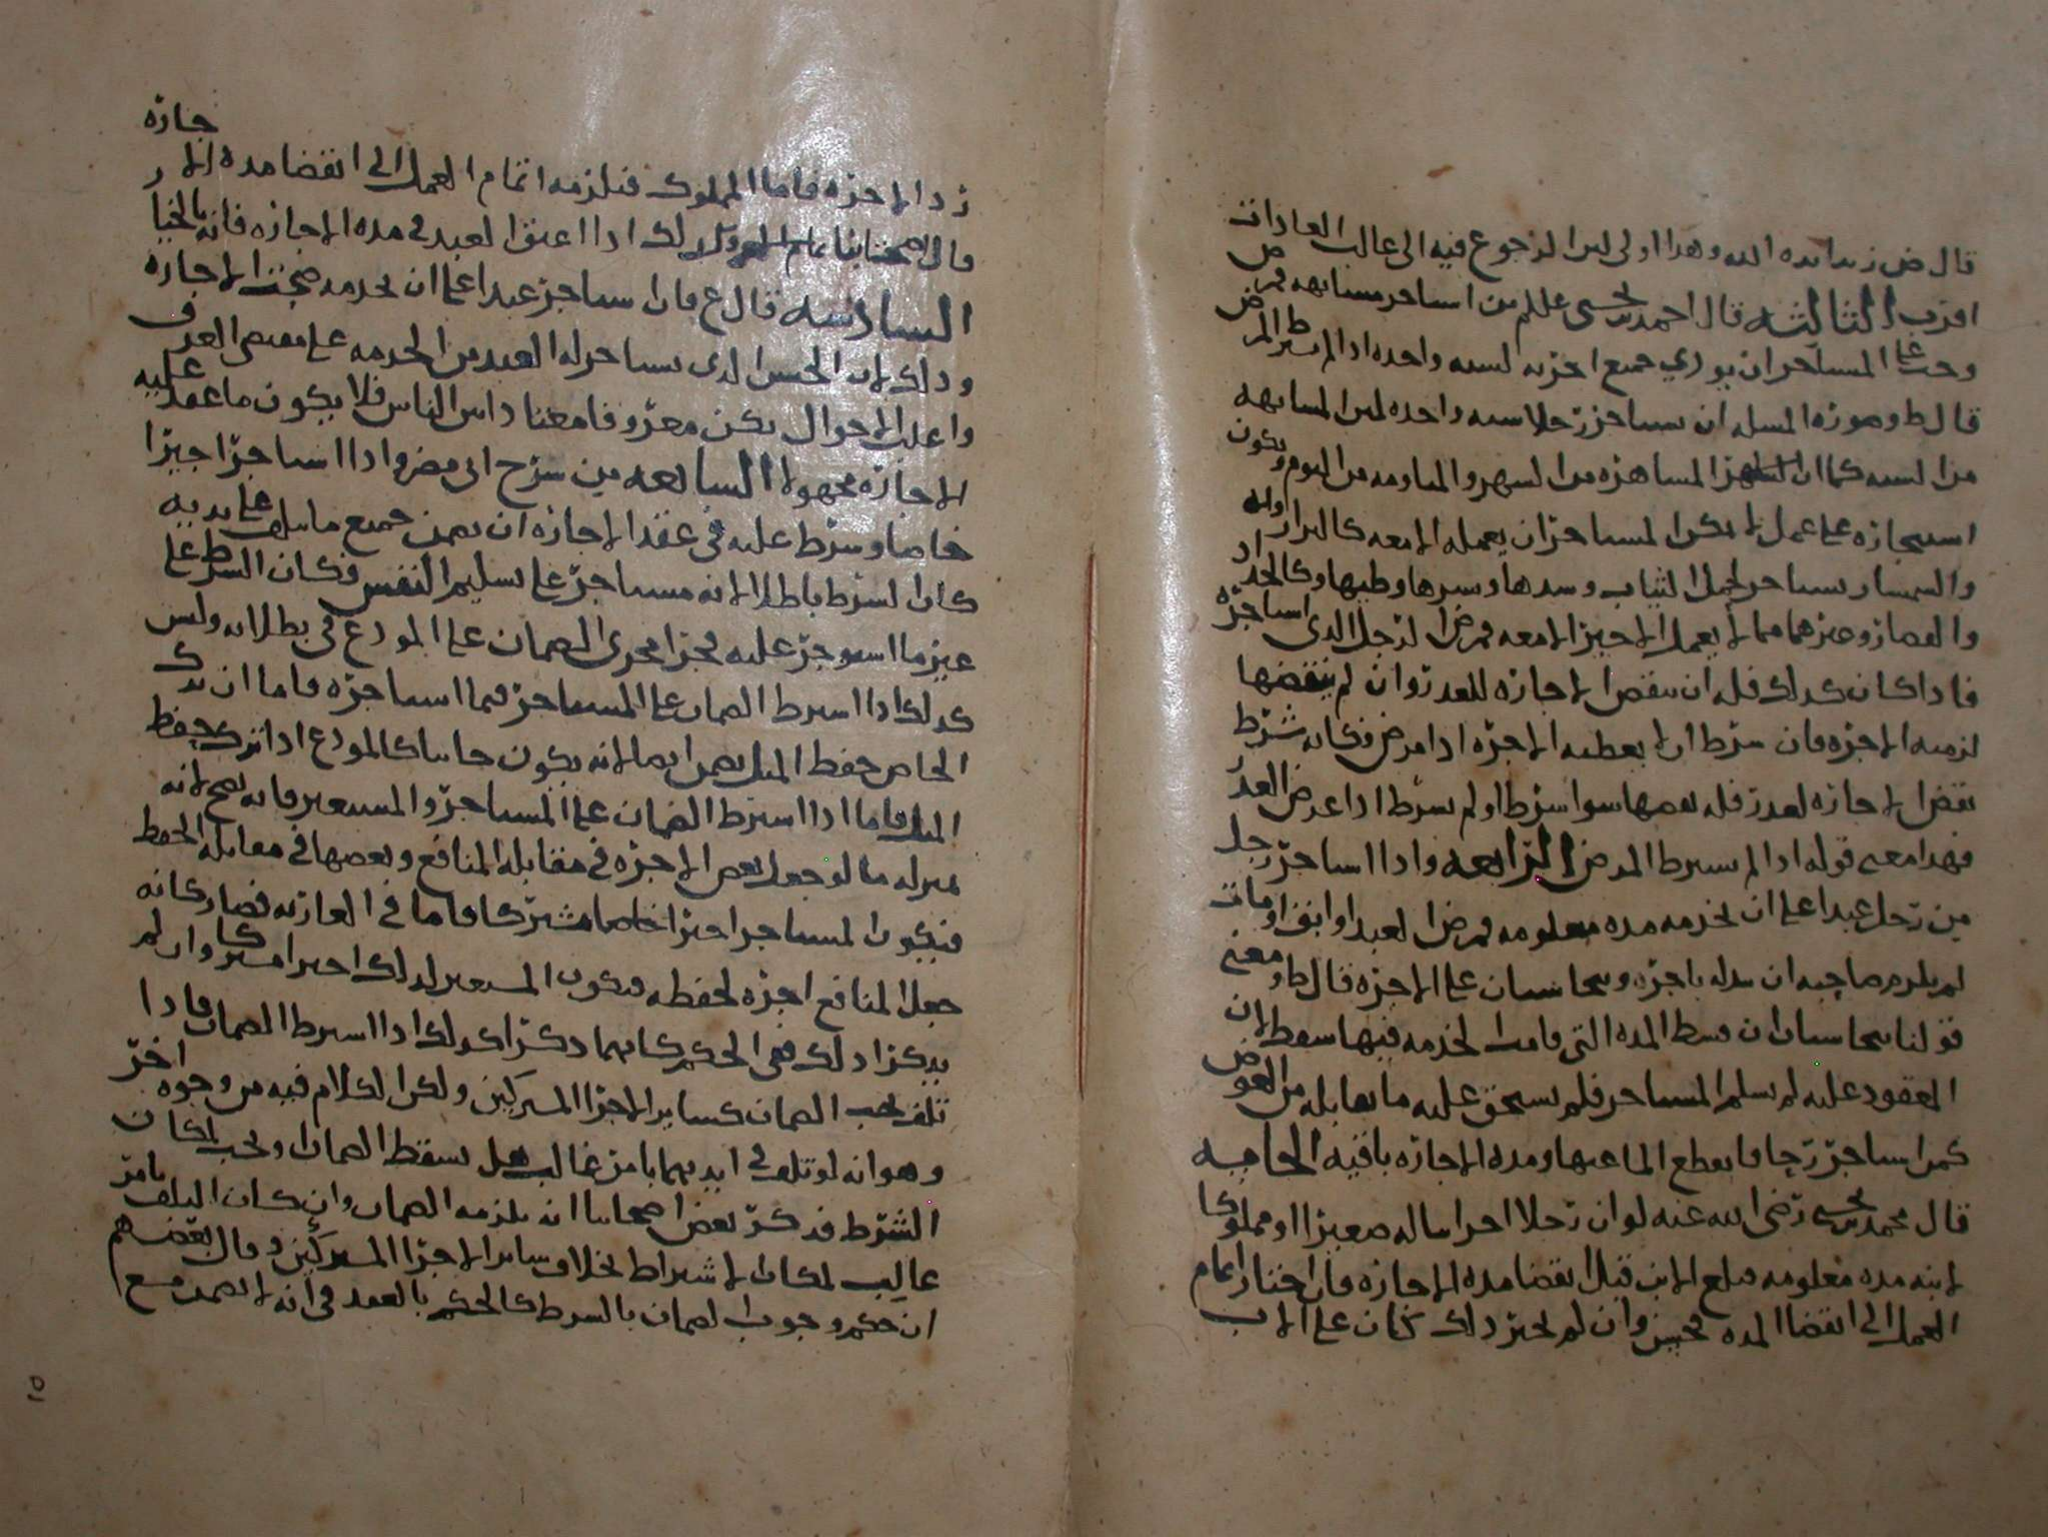 قال ض زيد ايده الله وهذا اولى لان الرجوع فيه الى غالب العادات
اقرب الثالثه قال احمد بن يحيى عللم من استاجر مسانهه فمرض
وجب على المستاجر ان يودي جميع اجرته لسنه واحده اذا لم يشترط المرض
قال ط وصوره المسله ان يستاجر رجلا سنه واحده لان المسانهه
من السنه كما ان المشاهره من الشهر والمياومه من اليوم ويكون
استيجاره على عمل لا يمكن المستاجر ان يعمله الا معه كالبزاز
والسمسار يستاجر لحمل الثياب وشدها ونشرها وطيها وكالحداد
والقصار وغيرهما مما لا يعمل الاجير الا معه فمرض الرجل الذي استاجره
فاذا كان كذلك فله ان ينقض الاجاره للعذر وان لم ينقضها
لزمته الاجره فان شرط ان لا يعطيه الاجره اذا مرض فكانه شرط
نقض الاجاره لعذر فله نقضها سوا شرط او لم يشرط اذا عرض العذر
فهذا معنى قوله اذا لم يشترط المرض الرابعه واذا استاجر رجل
من رجل عبدا على ان يخدمه مده معلومه فمرض العبد او ابق او مات
لم يلزم صاحبه ان يبدله باخر ويتحاسبان على الاجره قال ط ومعنى
قولنا يتحاسبان ان قسط المده التي فاتت الخدمه فيها سقط لان
المعقود عليه لم يسلم للمستاجر فلم يستحق عليه ما يقابله من العوض
كمن استاجر رحا فانقطع الما عنها ومده الاجاره باقيه الخامسه
قال محمد بن يحيى رضي الله عنه لو ان رجلا اجر ابنا له صغيرا او مملوكا
لابنه مده معلومه فبلغ الابن قبل انقضا مده الاجاره فان اختار اتمام
العمل الى انقضا المده فحسن وان لم يختر ذلك كان على الاب
رد الاجره فاما المملوك فيلزمه اتمام العمل الى انقضا مده الاجاره
قال اصحابنا وكذلك اذا اعتق العبد في مده الاجاره فانه بالخيار
السادسه قال ع فان استاجر عبدا على ان يخدمه صحت الاجاره
وذلك لان الجنس الذي يستاجر له العبد من الخدمه على مقتضى العرف
واغلب الاحوال يكن معروفا معتادا بين الناس فلا يكون ما عقد عليه
الاجاره مجهولا السابعه من شرح ابي مضر واذا استاجر اجيرا
خاصا وشرط عليه في عقد الاجاره ان يضمن جميع ما يتلف على يديه
كان الشرط باطلا لانه مستاجر على تسليم النفس فكان الشرط على
غير ما استوجر عليه فجرا مجرى الضمان على المودع في بطلانه وليس
كذلك اذا اشترط الضمان على المستاجر فيما استاجره فاما ان ترك
الخاص حفظ المال يضمن ايضا لانه يكون جانيا كالمودع اذا ترك حفظ
المال فاما اذا اشترط الضمان على المستاجر والمستعير فانه يصح لانه
بمنزله ما لو جعل بعض الاجره في مقابله المنافع وبعضها في مقابله الحفظ
فيكون المستاجر اجيرا مشتركا فاما في العاريه فصار كانه
جعل المنافع اجره لحفظه فيكون المستعير لذلك اجيرا مشتركا وان لم
يذكرا ذلك ففي الحكم كانهما ذكرا كذلك اذا اشترط الضمان فاذا
تلف يجب الضمان كساير الاجرا المشتركين ولكن الكلام فيه من وجوه اخر
وهو انه لو تلف في ايديهما بامر غالب هل يسقط الضمان او يجب لمكان
الشرط فذكر بعض اصحابنا انه يلزمه الضمان وان كان التلف بامر
غالب لمكان الاشتراط بخلاف ساير الاجرا المشتركين وقال بعضهم
ان حكم وجوب الضمان بالشرط كالحكم بالعقد في انه لا يضمن مع